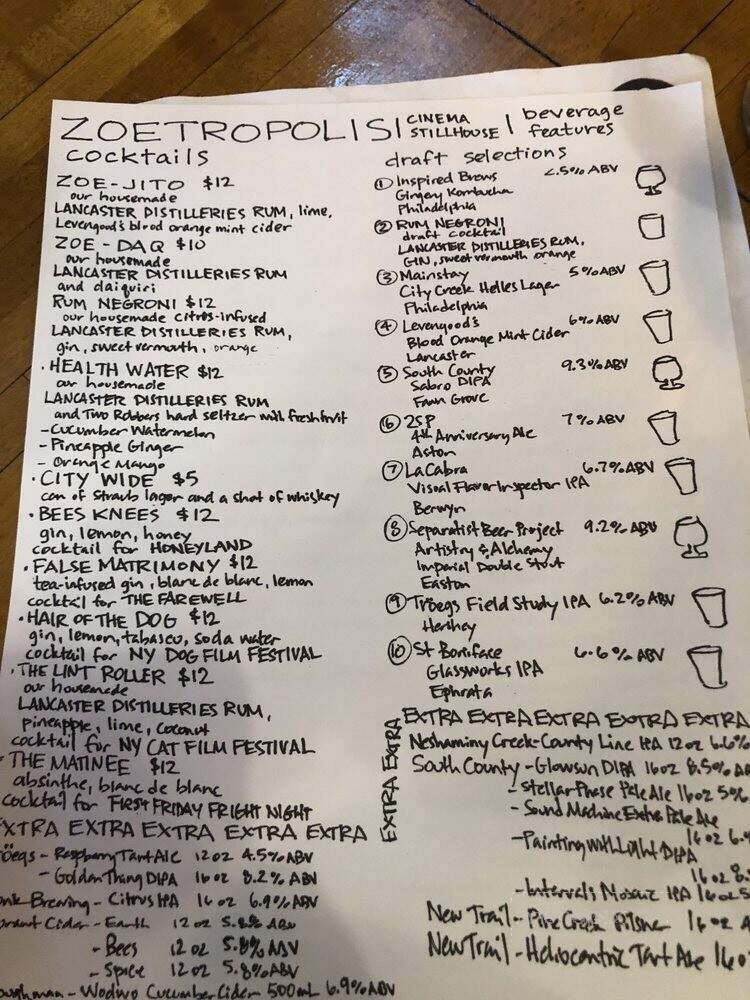 ZOETROPOLIS | CINEMA STILLHOUSE | beverage features
cocktails
ZOE-JITO $12
our housemade
LANCASTER DISTILLERIES RUM, lime,
Levengood's blood orange mint cider
ZOE-DAQ $10
our housemade
LANCASTER DISTILLERIES RUM
and daiquiri
RUM NEGRONI $12
our housemade citrus-infused
LANCASTER DISTILLERIES RUM,
gin, sweet vermouth, orange
· HEALTH WATER $12
our housemade
LANCASTER DISTILLERIES RUM
and Two Robbers hard seltzer with fresh fruit
- Cucumber Watermelon
- Pineapple Ginger
- Orange Mango
· CITY WIDE $5
can of Straub lager and a shot of whiskey
· BEES KNEES $12
gin, lemon, honey
cocktail for HONEYLAND
· FALSE MATRIMONY $12
tea-infused gin, blanc de blanc, lemon
cocktail for THE FAREWELL
· HAIR OF THE DOG $12
gin, lemon, tabasco, soda water
cocktail for NY DOG FILM FESTIVAL
· THE LINT ROLLER $12
our housemade
LANCASTER DISTILLERIES RUM,
pineapple, lime, coconut
cocktail for NY CAT FILM FESTIVAL
· THE MATINEE $12
absinthe, blanc de blanc
cocktail for FIRST FRIDAY FRIGHT NIGHT
EXTRA EXTRA EXTRA EXTRA EXTRA
röegs - Raspberry Tart Ale 12 oz 4.5% ABV
- Golden Thang DIPA 16 oz 8.2% ABV
Brewing - Citrus IPA 16 oz 6.9% ABV
Cider - Earth 12 oz 5.8% ABV
- Bees 12 oz 5.8% ABV
- Spice 12 oz 5.8% ABV
- Wodwo Cucumber Cider 500mL 6.9% ABV
draft selections
① Inspired Brews <.5% ABV
Gingery Kombucha
Philadelphia
② RUM NEGRONI
draft cocktail
LANCASTER DISTILLERIES RUM,
GIN, sweet vermouth orange
③ Mainstay 5% ABV
City Creek Helles Lager
Philadelphia
④ Levengood's 6% ABV
Blood Orange Mint Cider
Lancaster
⑤ South County 9.3% ABV
Sabro DIPA
Fawn Grove
⑥ 2SP 7% ABV
4th Anniversary Ale
Aston
⑦ La Cabra 6.7% ABV
Visual Flavor Inspector IPA
Berwyn
⑧ Separatist Beer Project 9.2% ABV
Artistry & Alchemy
Imperial Double Stout
Easton
⑨ Tröegs Field Study IPA 6.2% ABV
Hershey
⑩ St Boniface 6.6% ABV
Glassworks IPA
Ephrata
EXTRA EXTRA EXTRA EXTRA EXTRA
EXTRA EXTRA
Neshaminy Creek - County Line IPA 12 oz 6.6%
South County - Glowsun DIPA 16 oz 8.5% AB
- Stellar Phase Pale Ale 16 oz 5%
- Sound Machine Extra Pale Ale
16 oz 6.
- Painting with Light DIPA
16 oz 8.
- Intervals Mosaic IPA 16 oz 5
New Trail - Pine Creek Pilsner 16 oz
New Trail - Heliocentric Tart Ale 16 o